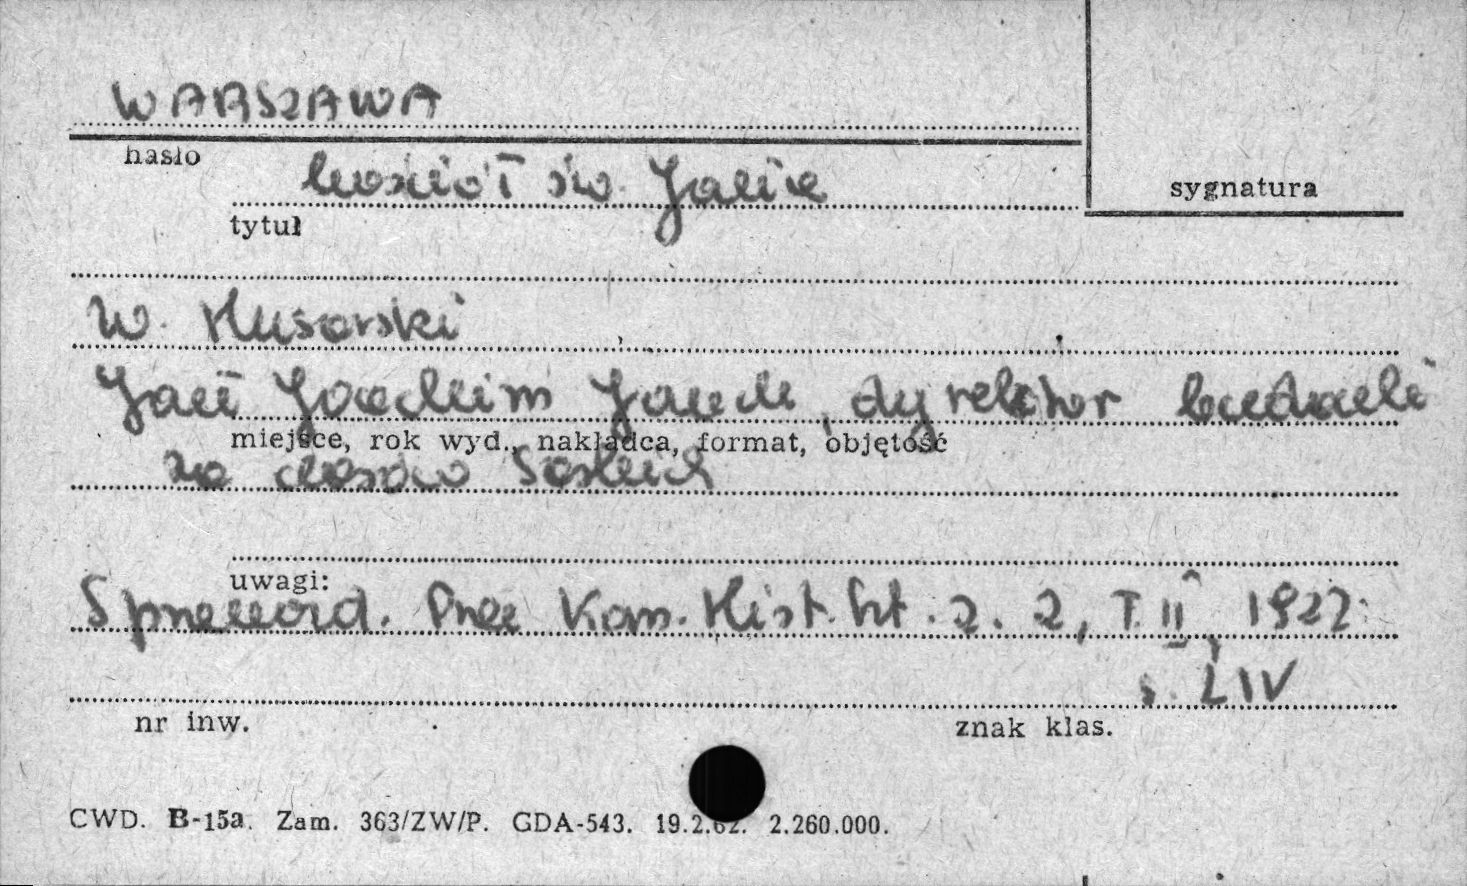 WARSZAWA
hasło
kościół św. Jana
sygnatura
tytuł
W. Husarski
Jan Joachim Jauch, dyrektor budowli
miejsce, rok wyd., nakładca, format, objętość
za czasów Saskich
uwagi:
Sprawozd. Prac Kom. Hist. Szt. z. 2, T. II, 1922
s. LIV
nr inw.
znak klas.
CWD. B-15a. Zam. 363/ZW/P. GDA-543. 19.2.62. 2.260.000.